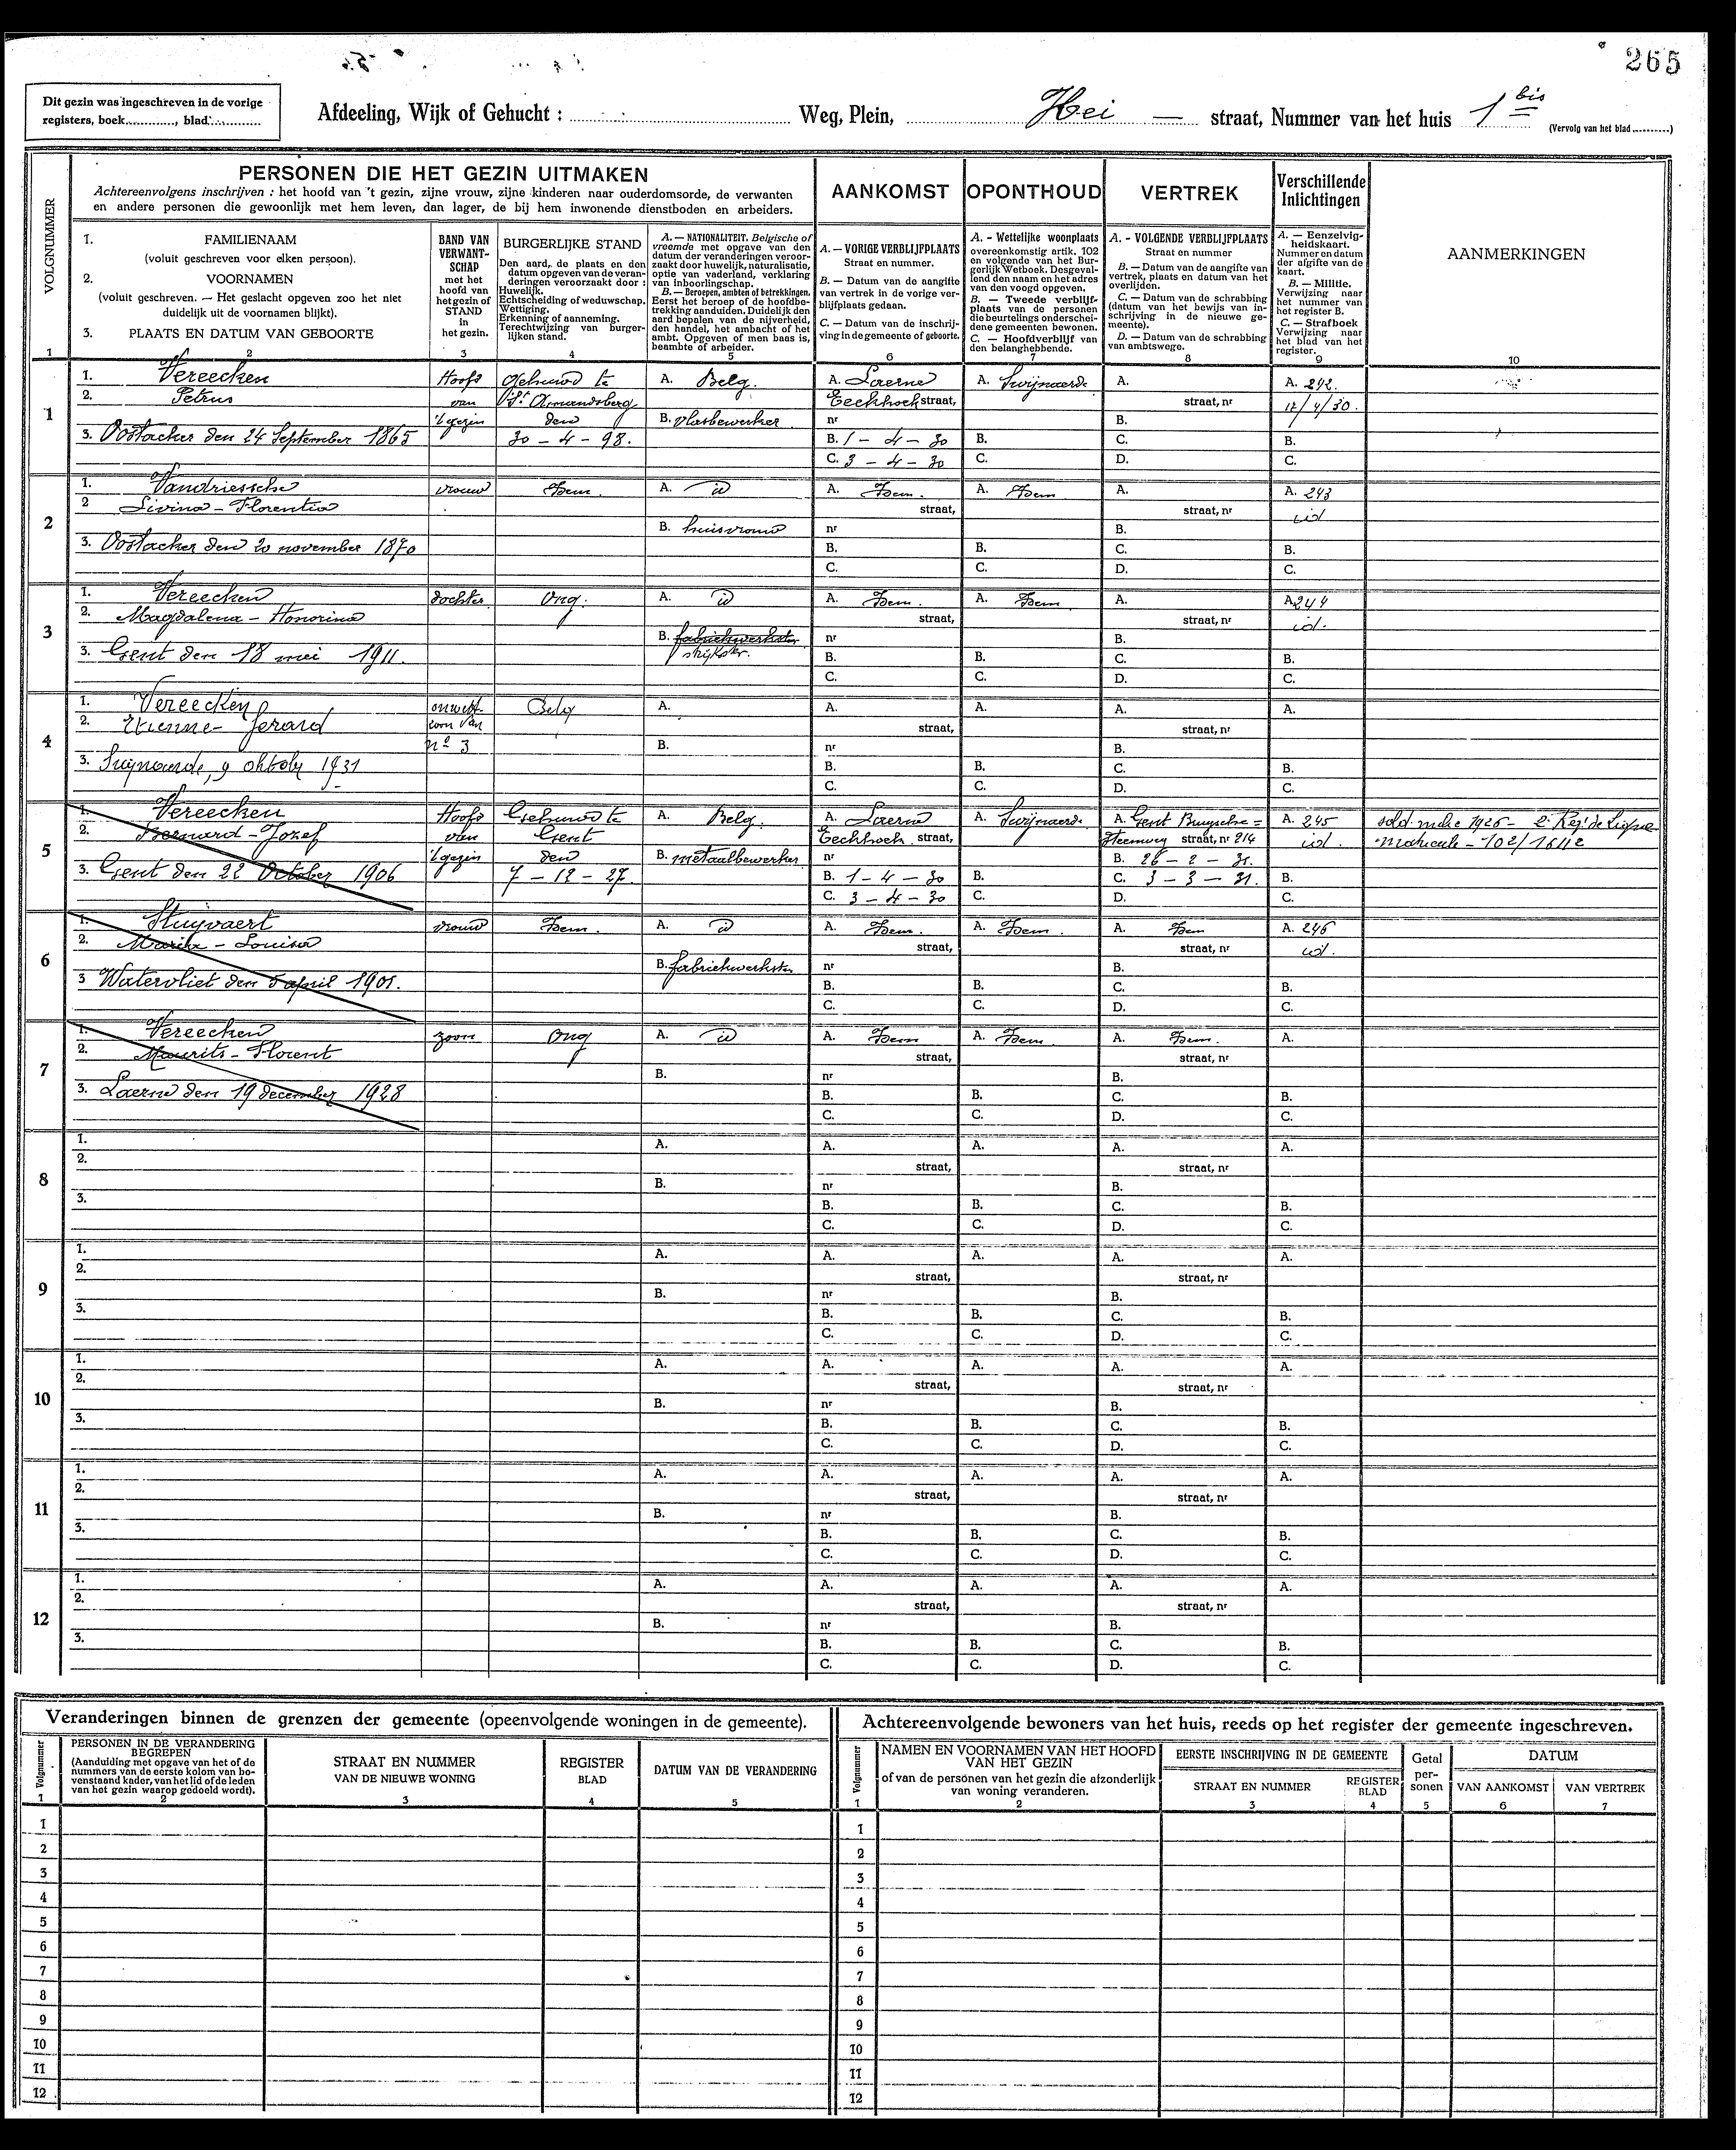 265
Dit gezin was ingeschreven in de vorige
registers, boek............, blad............
Afdeeling, Wijk of Gehucht : ............ Weg, Plein, Hei — straat, Nummer van het huis 1 bis (Vervolg van het blad ..........)
VOLGNUMMER
PERSONEN DIE HET GEZIN UITMAKEN
Achtereenvolgens inschrijven : het hoofd van 't gezin, zijne vrouw, zijne kinderen naar ouderdomsorde, de verwanten
en andere personen die gewoonlijk met hem leven, dan lager, de bij hem inwonende dienstboden en arbeiders.
AANKOMST
OPONTHOUD
VERTREK
Verschillende
Inlichtingen
AANMERKINGEN
1. FAMILIENAAM
(voluit geschreven voor elken persoon).
2. VOORNAMEN
(voluit geschreven. — Het geslacht opgeven zoo het niet
duidelijk uit de voornamen blijkt).
3. PLAATS EN DATUM VAN GEBOORTE
BAND VAN
VERWANT-
SCHAP
met het
hoofd van
het gezin of
STAND
in
het gezin.
BURGERLIJKE STAND
Den aard, de plaats en den
datum opgeven van de veran-
deringen veroorzaakt door :
Huwelijk.
Echtscheiding of weduwschap.
Wettiging.
Erkenning of aanneming.
Terechtwijzing van burger-
lijken stand.
A. — NATIONALITEIT. Belgische of
vreemde met opgave van den
datum der veranderingen veroor-
zaakt door huwelijk, naturalisatie,
optie van vaderland, verklaring
van inboorlingschap.
B. — Beroepen, ambten of betrekkingen.
Eerst het beroep of de hoofdbe-
trekking aanduiden. Duidelijk den
aard bepalen van de nijverheid,
den handel, het ambacht of het
ambt. Opgeven of men baas is,
beambte of arbeider.
A. — VORIGE VERBLIJFPLAATS
Straat en nummer.
B. — Datum van de aangifte
van vertrek in de vorige ver-
blijfplaats gedaan.
C. — Datum van de inschrij-
ving in de gemeente of geboorte.
A. - Wettelijke woonplaats
overeenkomstig artik. 102
en volgende van het Bur-
gerlijk Wetboek. Desgeval-
lend den naam en het adres
van den voogd opgeven.
B. — Tweede verblijf-
plaats van de personen
die beurtelings onderschei-
dene gemeenten bewonen.
C. — Hoofdverblijf van
den belanghebbende.
A. - VOLGENDE VERBLIJFPLAATS
Straat en nummer
B. — Datum van de aangifte van
vertrek, plaats en datum van het
overlijden.
C. — Datum van de schrabbing
(datum van het bewijs van in-
schrijving in de nieuwe ge-
meente).
D. — Datum van de schrabbing
van ambtswege.
A. — Eenzelvig-
heidskaart.
Nummer en datum
der afgifte van de
kaart.
B. — Militie.
Verwijzing naar
het nummer van
het register B.
C. — Strafboek
Verwijzing naar
het blad van het
register.
1 2 3 4 5 6 7 8 9 10
1
1. Vereecken Hoofd Gehuwd te A. Belg. A. Laerne A. Swijnaerde A. A. 242.
2. Petrus van St Amandsberg Eeckhoek straat, straat, nr 17/4/30.
't gezin den B. vlasbewerker nr B.
3. Oostacker den 24 September 1865 30 - 4 - 98. B. 1 - 4 - 30 B. C. B.
C. 3 - 4 - 30 C. D. C.
2
1. Vandriessche vrouw Idem. A. id A. Idem. A. Idem A. A. 243
2 Livina - Florentia straat, straat, nr id
B. huisvrouw nr B.
3. Oostacker den 20 november 1870 B. B. C. B.
C. C. D. C.
3
1. Vereecken dochter Ong. A. id A. Idem. A. Idem. A. A. 244
2. Magdalena - Honorina straat, straat, nr id.
B. fabriekwerkster nr B.
strijkster.
3. Gent den 18 mei 1911. B. B. C. B.
C. C. D. C.
4
1. Vereecken onwett. Belg A. A. A. A. A.
2. Etienne - Gerard zoon van straat, straat, nr
n° 3 B. nr B.
3. Swijnaerde, 9 oktober 1931 B. B. C. B.
C. C. D. C.
5
1. Vereecken Hoofd Gehuwd te A. Belg. A. Laerne A. Swijnaerde A. Gent Brugsche= A. 245 sold. milic 1926 - 2e Reg. de Ligne
2. Bernard - Jozef van Gent Eeckhoek straat, Steenweg straat, nr 214 id. matricule - 102/1611e
't gezin den B. metaalbewerker nr B. 26 - 2 - 31.
3. Gent den 22 October 1906 7 - 12 - 27. B. 1 - 4 - 30 B. C. 3 - 3 - 31. B.
C. 3 - 4 - 30 C. D. C.
6
1. Stuyvaert vrouw Idem. A. id A. Idem. A. Idem. A. Idem A. 246
2. Maria - Louisa straat, straat, nr id.
B. fabriekwerkster nr B.
3 Watervliet den 5 april 1901. B. B. C. B.
C. C. D. C.
7
1. Vereecken zoon Ong A. id A. Idem A. Idem. A. Idem. A.
2. Maurits - Florent straat, straat, nr
B. nr B.
3. Laerne den 19 december 1928 B. B. C. B.
C. C. D. C.
8
1. A. A. A. A. A.
2. straat, straat, nr
B. nr B.
3. B. B. C. B.
C. C. D. C.
9
1. A. A. A. A. A.
2. straat, straat, nr
B. nr B.
3. B. B. C. B.
C. C. D. C.
10
1. A. A. A. A. A.
2. straat, straat, nr
B. nr B.
3. B. B. C. B.
C. C. D. C.
11
1. A. A. A. A. A.
2. straat, straat, nr
B. nr B.
3. B. B. C. B.
C. C. D. C.
12
1. A. A. A. A. A.
2. straat, straat, nr
B. nr B.
3. B. B. C. B.
C. C. D. C.
Veranderingen binnen de grenzen der gemeente (opeenvolgende woningen in de gemeente).
Volgnummer
PERSONEN IN DE VERANDERING
BEGREPEN
(Aanduiding met opgave van het of de
nummers van de eerste kolom van bo-
venstaand kader, van het lid of de leden
van het gezin waarop gedoeld wordt).
STRAAT EN NUMMER
VAN DE NIEUWE WONING
REGISTER
BLAD
DATUM VAN DE VERANDERING
1 2 3 4 5
1
2
3
4
5
6
7
8
9
10
11
12
Achtereenvolgende bewoners van het huis, reeds op het register der gemeente ingeschreven.
Volgnummer
NAMEN EN VOORNAMEN VAN HET HOOFD
VAN HET GEZIN
of van de personen van het gezin die afzonderlijk
van woning veranderen.
EERSTE INSCHRIJVING IN DE GEMEENTE
STRAAT EN NUMMER
REGISTER
BLAD
Getal
per-
sonen
DATUM
VAN AANKOMST
VAN VERTREK
1 2 3 4 5 6 7
1
2
3
4
5
6
7
8
9
10
11
12